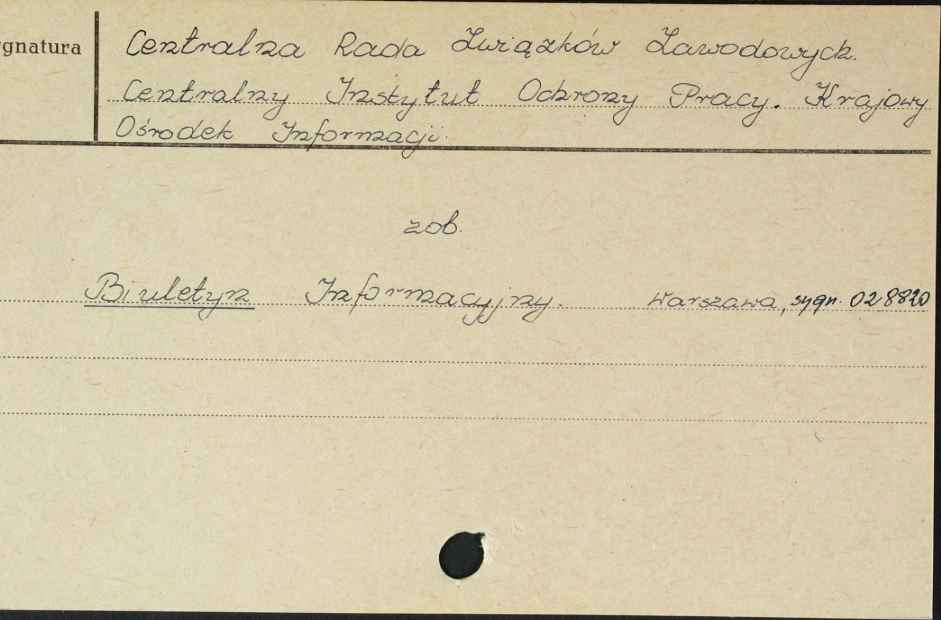 ygnatura
Centralna Rada Związków Zawodowych.
Centralny Instytut Ochrony Pracy. Krajowy
Ośrodek Informacji.
zob.
Biuletyn Informacyjny. Warszawa, sygn. 028820